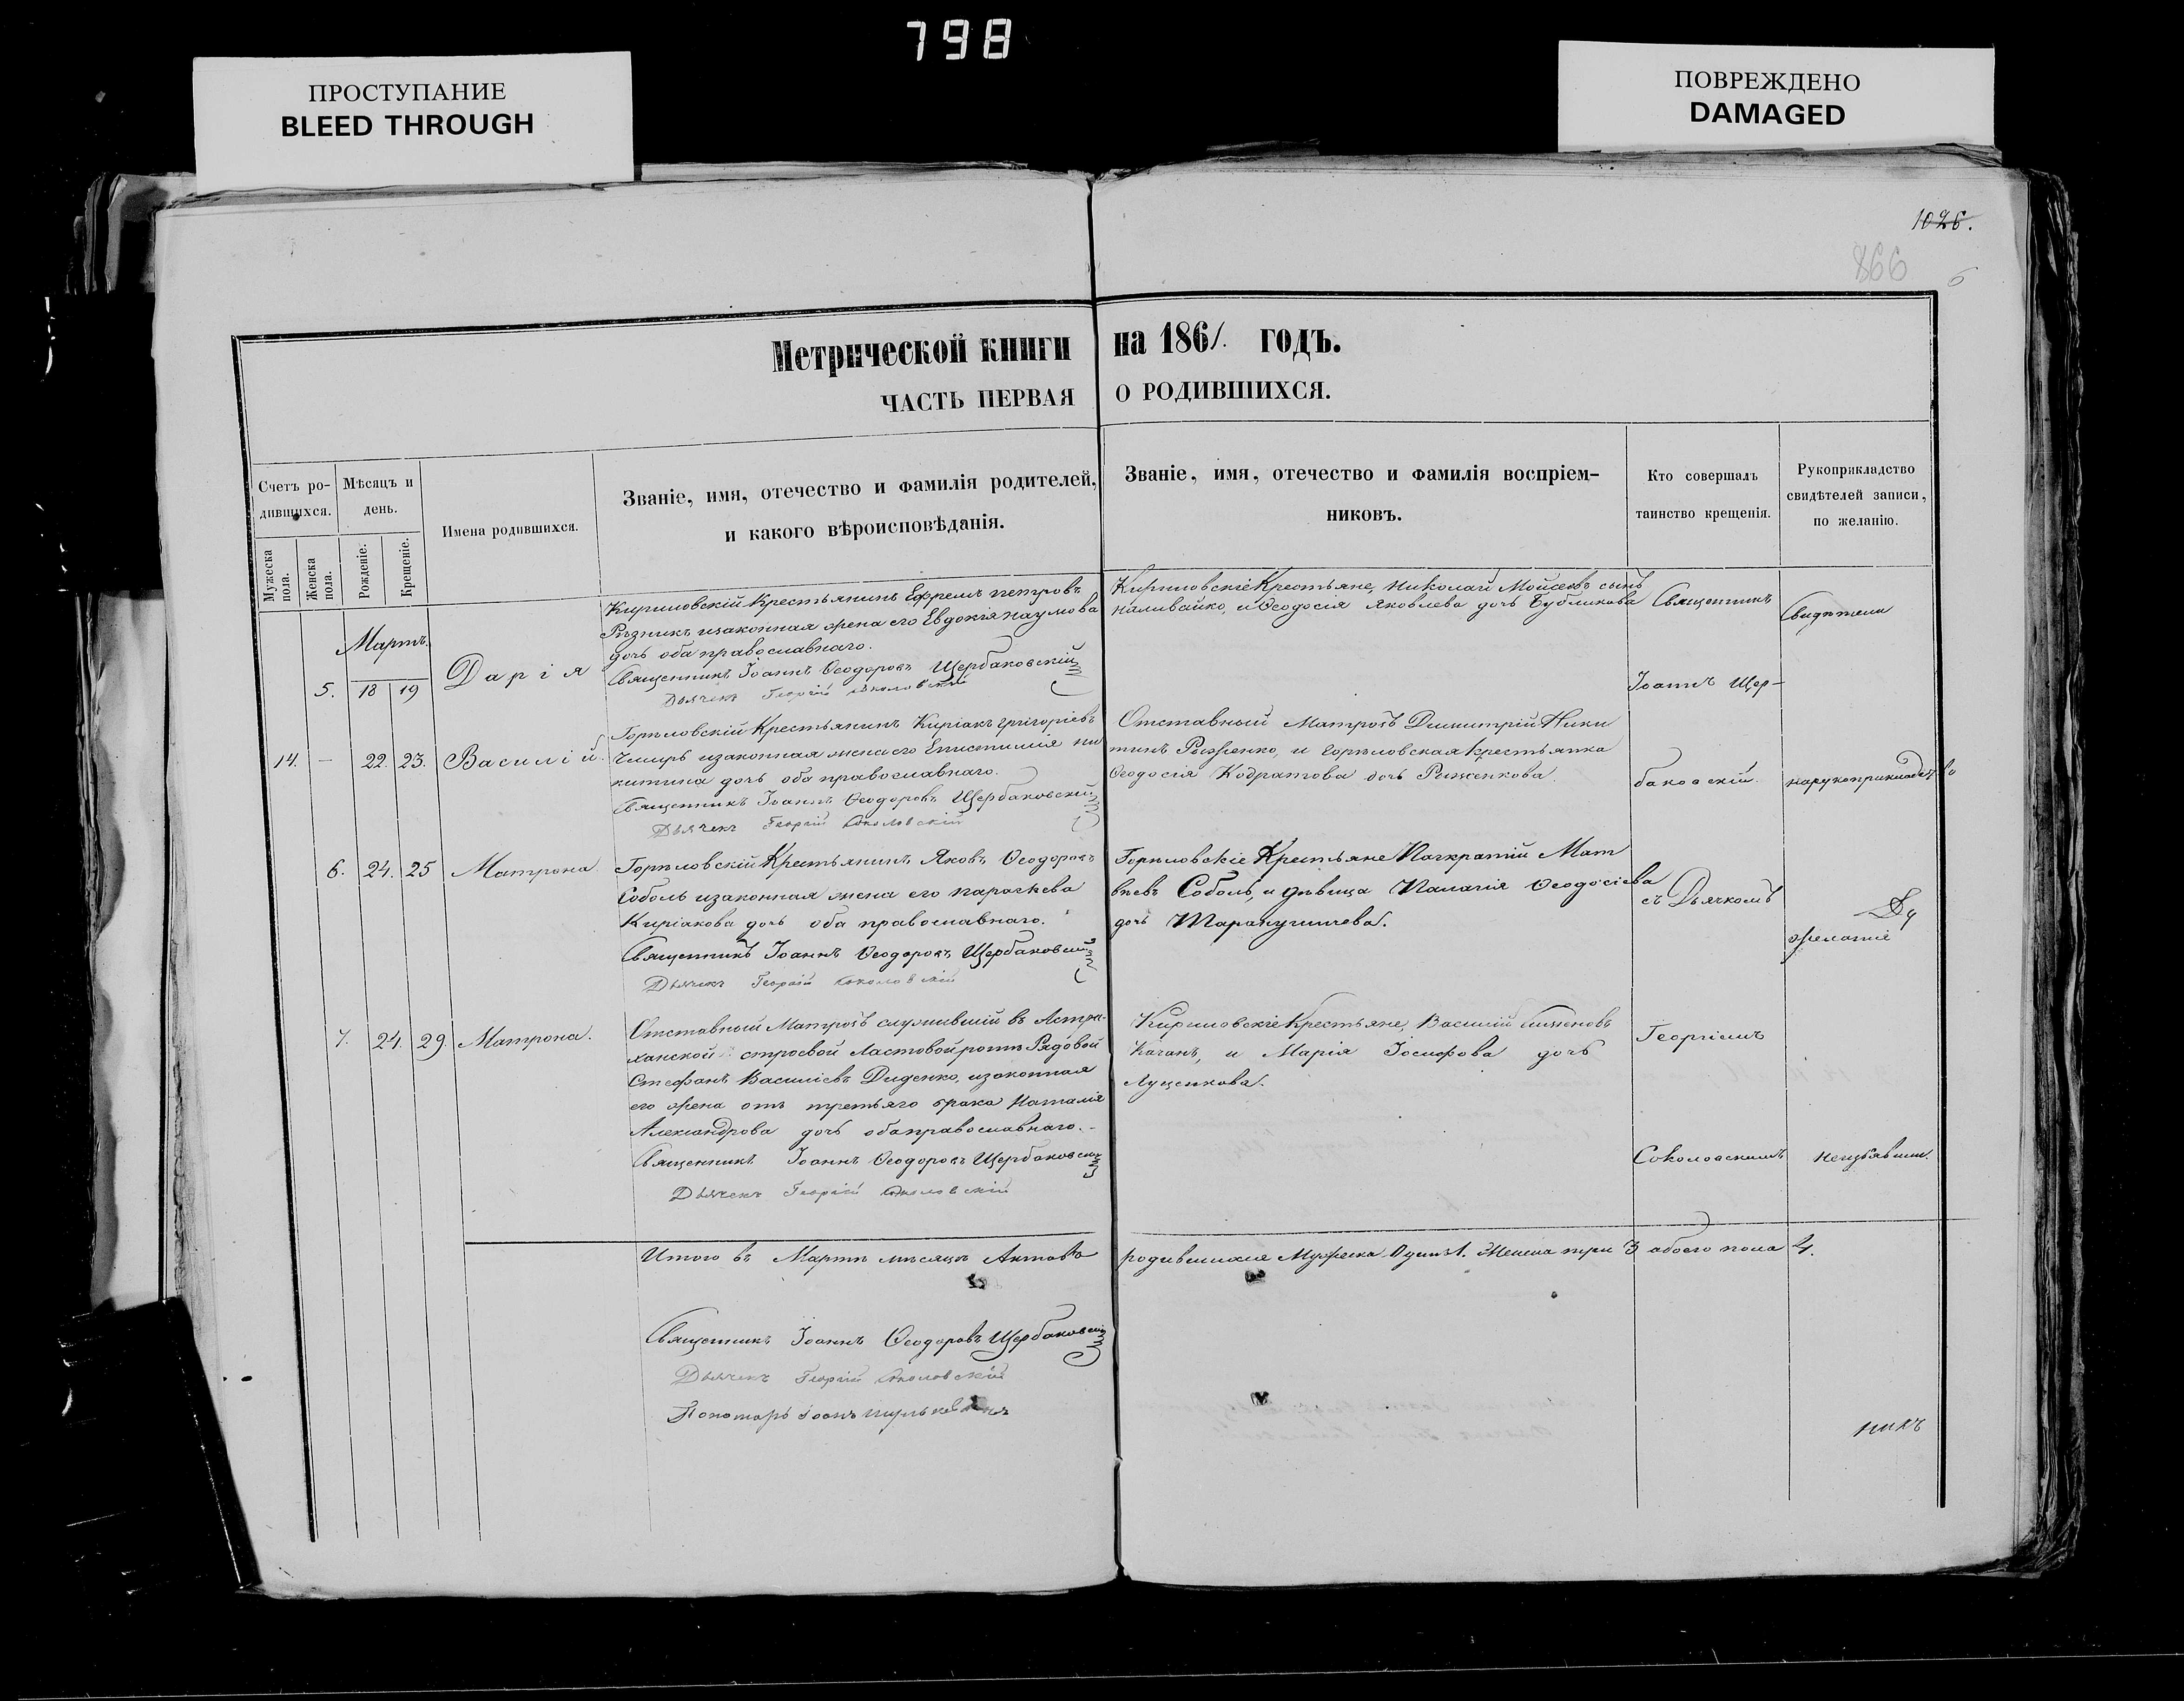 798
ПРОСТУПАНИЕ
BLEED THROUGH
ПОВРЕЖДЕНО
DAMAGED
1026.
866
6
Метрической книги на 1861. годъ.
ЧАСТЬ ПЕРВАЯ О РОДИВШИХСЯ.
Счетъ ро-
дившихся.
Мужеска
пола.
Женска
пола.
Мѣсяцъ и
день.
Рожденіе.
Крещеніе.
Имена родившихся.
Званіе, имя, отечество и фамилія родителей,
и какого вѣроисповѣданія.
Званіе, имя, отечество и фамилія воспріем-
никовъ.
Кто совершалъ
таинство крещенія.
Рукоприкладство
свидѣтелей записи,
по желанію.
Мартъ.
5. 18 19 Дарія
Кириловскій Крестьянинъ Ефремъ петровъ
Рѣзникъ изаконная жена его Евдокія наумова
дочь оба православнаго.
Священникъ Іоаннъ Ѳеодоровъ Щербаковскій
Дьячекъ Георгій Соколовскій
Кириловскіе Крестьяне, Николай Мойсеевъ сынъ
наливайко, и Ѳеодосія Яковлева дочь Бубликова
14. – 22. 23. Василій.
Горѣловскій Крестьянинъ Киріакъ григоріевъ
Чмиръ изаконная жена его Епистимія ни
китина дочь оба православнаго.
Священникъ Іоаннъ Ѳеодоровъ Щербаковскій
Дьячекъ Георгій Соколовскій
Отставный Матрозъ Димитрій Ники
тинъ Рыженко, и горѣловская крестьянка
Ѳеодосія Кодратова дочь Рыженкова.
6. 24. 25 Матрона
Горѣловскій Крестьянинъ Яковъ Ѳеодоровъ
Соболь изаконная жена его параскева
Киріакова дочь оба православнаго.
Священникъ Іоаннъ Ѳеодоровъ Щербаковскій
Дьячекъ Георгій Соколовскій
Горѣловскіе Крестьяне Панкратій Мат
вѣевъ Соболь, и дѣвица Палагія Ѳеодосіева
дочь
7. 24. 29. Матрона.
Отставный Матрозъ служившій въ Астра-
ханской строевой Ластовой ротѣ Рядовой
Стефанъ Василіевъ Диденко, изаконная
его жена отъ третьяго брака Наталія
Александрова дочь обаправославнаго.-
Священникъ Іоаннъ Ѳеодоровъ Щербаковскій
Дьячекъ Георгій Соколовскій
Кириловскіе Крестьяне, Василій
Качанъ, и Марія Іосифова дочь
Луценкова.
Священникъ
Іоаннъ Щер-
баковскій.
съ Дьячкомъ
Георгіемъ
Соколовскимъ
Свидѣтели
нарукоприкладство
желанія
неизъявили.
Итого въ Мартѣ мѣсяцѣ Актовъ родившихся Мужеска Одинъ 1. Женска три 3 обоего пола 4.
Священникъ Іоаннъ Ѳеодоровъ Щербаковскій
Дьячекъ Георгій Соколовскій
Пономарь Іоанъ
никъ